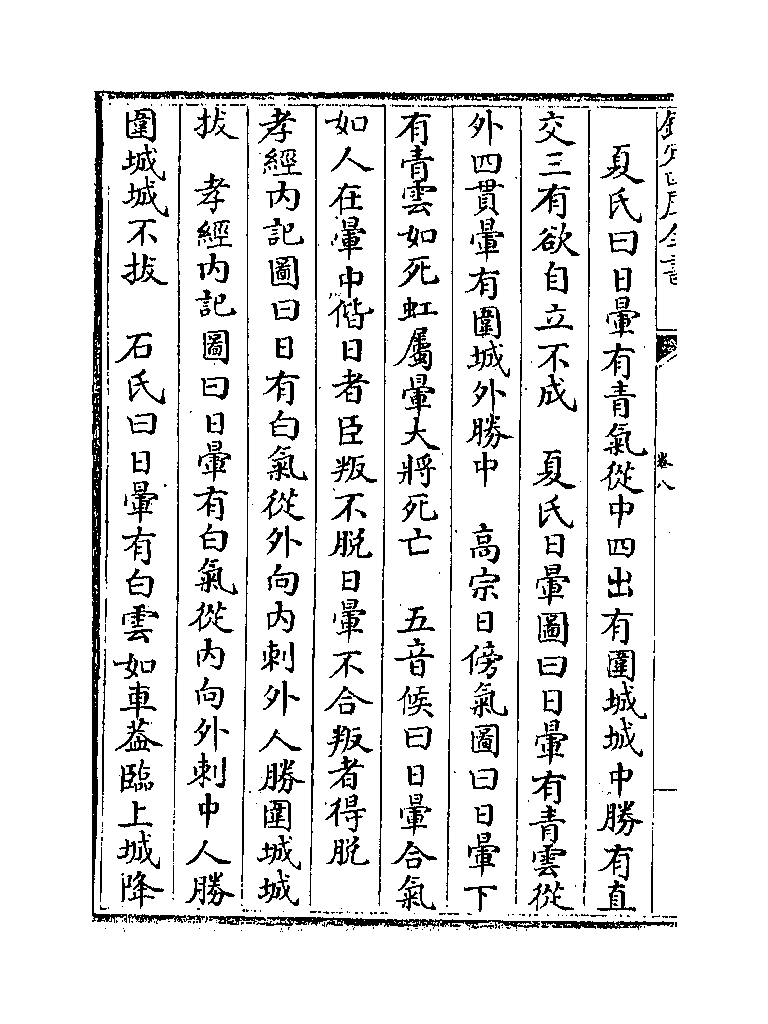 欽定四庫全書
卷八
夏氏曰日暈有青氣從中四出有圍城城中勝有直
交三有欲自立不成　夏氏日暈圖曰日暈有青雲從
外四貫暈有圍城外勝中　高宗日傍氣圖曰日暈下
有青雲如死虹屬暈大將死亡　五音候曰日暈合氣
如人在暈中偕日者臣叛不脱日暈不合叛者得脱
孝經内記圖曰日有白氣從外向内刺外人勝圍城城
拔　孝經内記圖曰日暈有白氣從内向外刺中人勝
圍城城不拔　石氏曰日暈有白雲如車葢臨上城降